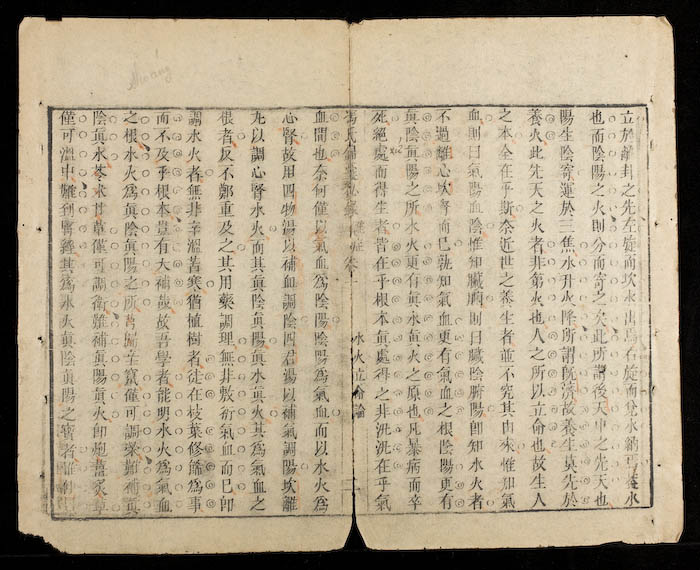 立於離卦之先左旋而坎水出焉右旋而兌水納焉惟水
也而陰陽之火則分而寄之矣此所謂後天中之先天也
陽生陰寄運於三焦水升火降所謂旣濟故養生莫先於
養火此先天之火者非第火也人之所以立命也故生人
之本全在乎斯奈近世之養生者並不究其由來惟知氣
血則曰氣陽血陰惟知臟腑則曰臟陰腑陽卽知水火者
不過離心坎腎而已孰知氣血更有氣血之根陰陽更有
眞陰眞陽之所水火更有眞水眞火之原也凡暴病而卒
死絕處而得生者皆在乎根本眞處得之非洗洗在乎氣
馮氏錦囊秘錄 雜症 卷十 水火立命論 二
血間也奈何僅以氣血爲陰陽陰陽爲氣血而以水火爲
心腎故用四物湯以補血調陰四君湯以補氣調陽坎離
丸以調心腎水火而其眞陰眞陽眞水眞火其爲氣血之
根者反不鄭重及之其用藥調理無非敷衍氣血而已卽
調水火者無非辛溫苦寒猶植樹者徒在枝葉修飾爲事
而不及乎根本豈有大補哉故吾學者能明水火爲氣血
之根水火爲眞陰眞陽之所
僅可調榮難補眞
陰眞水參朮甘草僅可調衛難補眞陽眞火卽炮薑炙草
僅可溫中難到腎經其爲水火眞陰眞陽之寳者惟仲
xi2